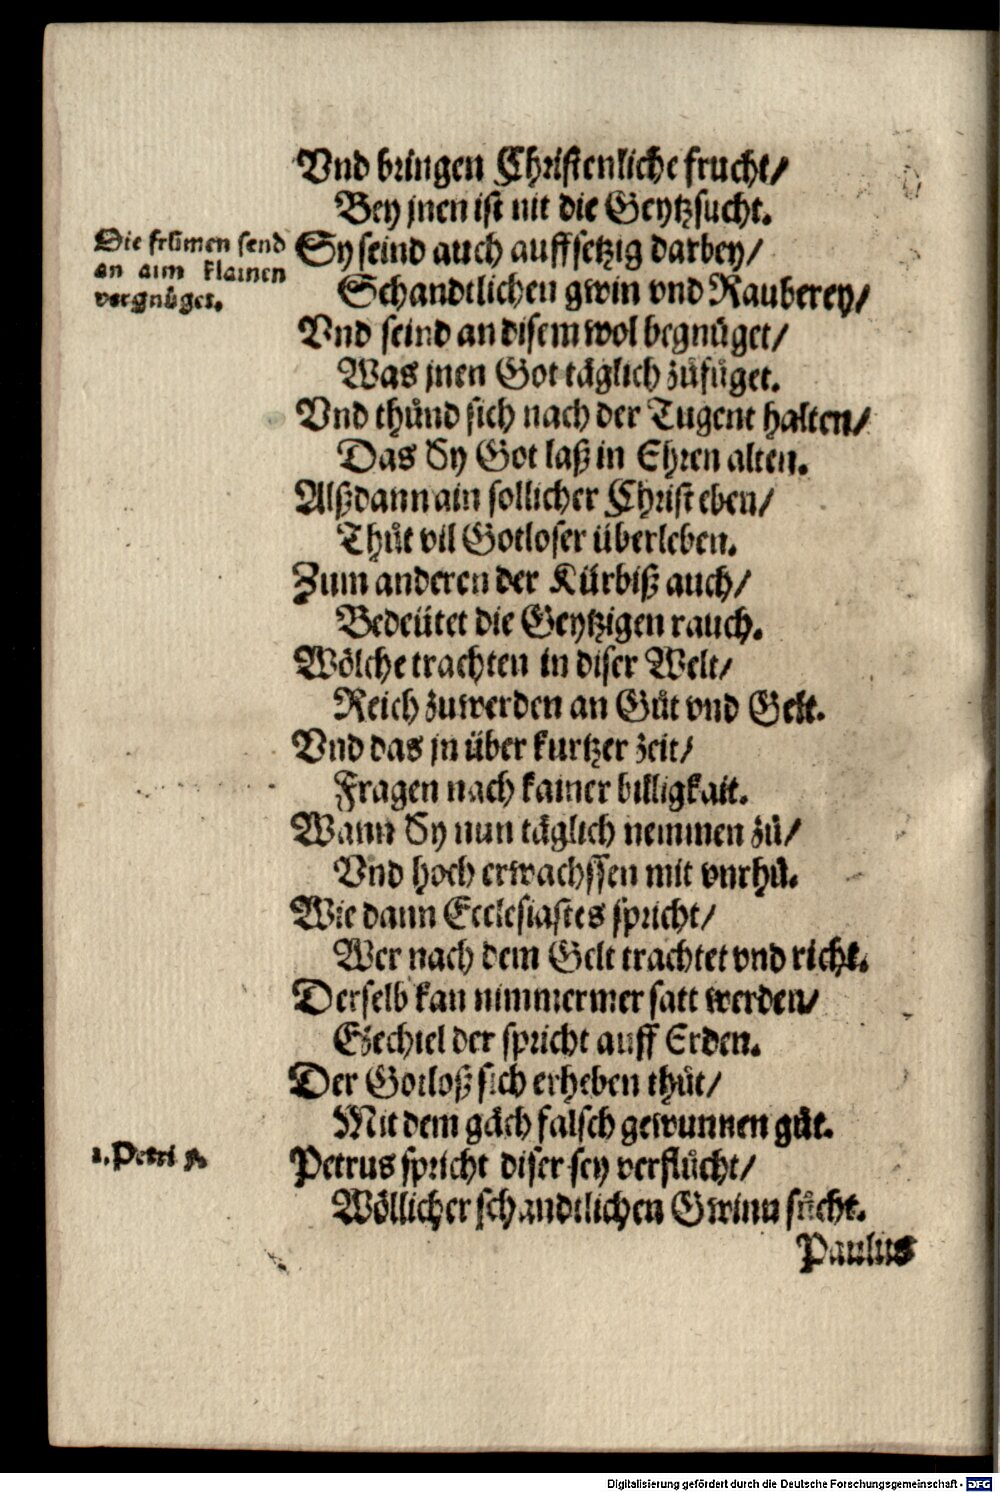 Vnd bringen Christenliche frucht/
Bey jnen ist nit die Geytzsucht.
Die frům̃en send
an aim klainen
vergnůget.
Sy seind auch auffsetzig darbey/
Schandtlichen gwin vnd Rauberey/
Vnd seind an disem wol begnůget/
Was jnen Got täglich zůfůget.
Vnd thůnd sich nach der Tugent halten/
Das Sy Got laß in Ehren alten.
Alßdann ain sollicher Christ eben/
Thůt vil Gotloser überleben.
Zum anderen der Kürbiß auch/
Bedeütet die Geytzigen rauch.
Wölche trachten in diser Welt/
Reich zuwerden an Gůt vnd Gelt.
Vnd das jn über kurtzer zeit/
Fragen nach kainer billigkait.
Wann Sy nun täglich nemmen zů/
Vnd hoch erwachssen mit vnrhů.
Wie dann Ecclesiastes spricht/
Wer nach dem Gelt trachtet vnd richt.
Derselb kan nimmermer satt werden/
Ezechiel der spricht auff Erden.
Der Gotloß sich erheben thůt/
Mit dem gäch falsch gewunnen gůt.
1. Petri
Petrus spricht diser sey verflůcht/
Wöllicher schandtlichen Gwinn sůcht.
Paulus
Digitalisierung gefördert durch die Deutsche Forschungsgemeinschaft - DFG